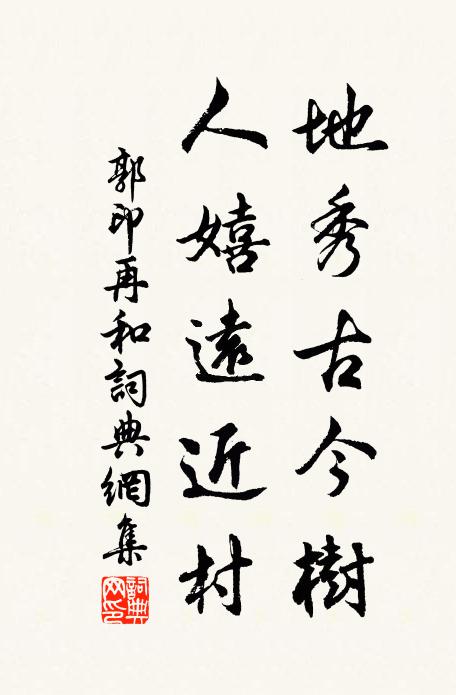 地秀古今樹
人嬉遠近村
郭印再和詞典網集
詞典網印